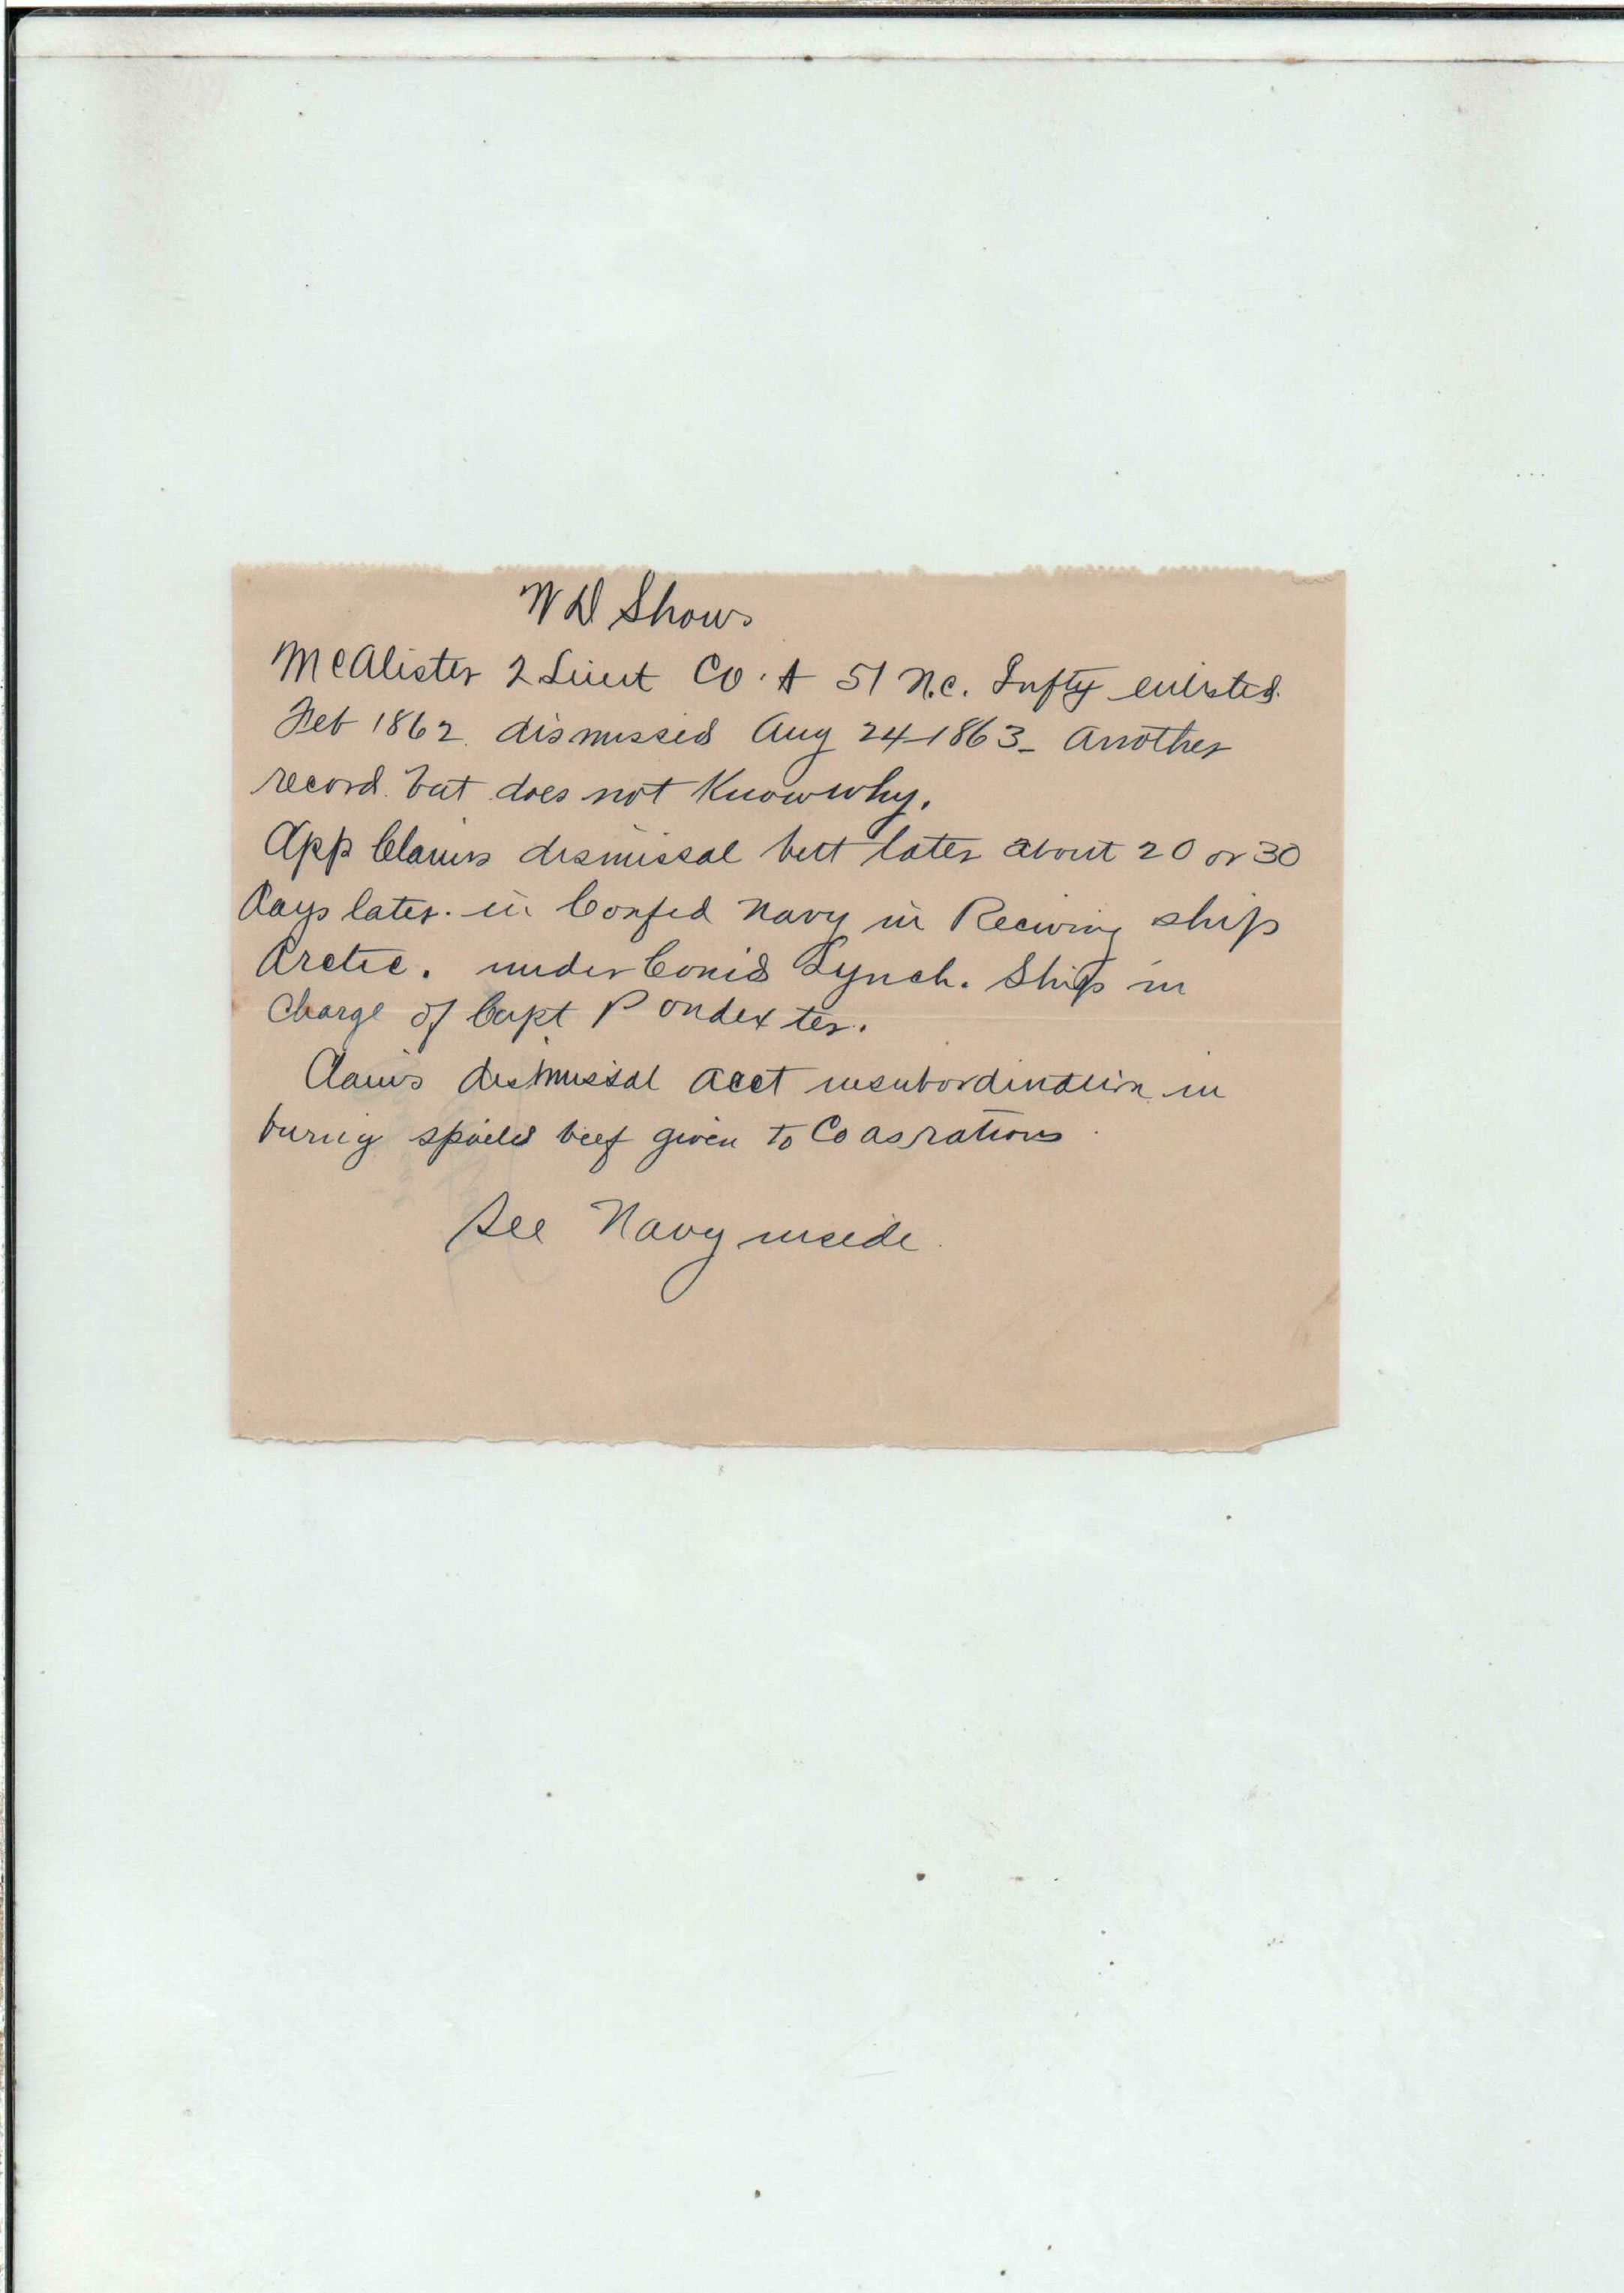 W D Shows
McAlister 2 Lieut Co. A 51 N.C. Infty enlisted.
Feb 1862. dismissed Aug 24-1863 - Another
record. but does not Know why.
App Claims dismissal but later about 20 or 30
days later. in Confed Navy in Reciving ship
Arctic. under Comd Lynch. Ship in
charge of Capt Pondexter.
Claims dismissal acct insubordination in
buring spoiled beef given to Co as rations.
See Navy inside.